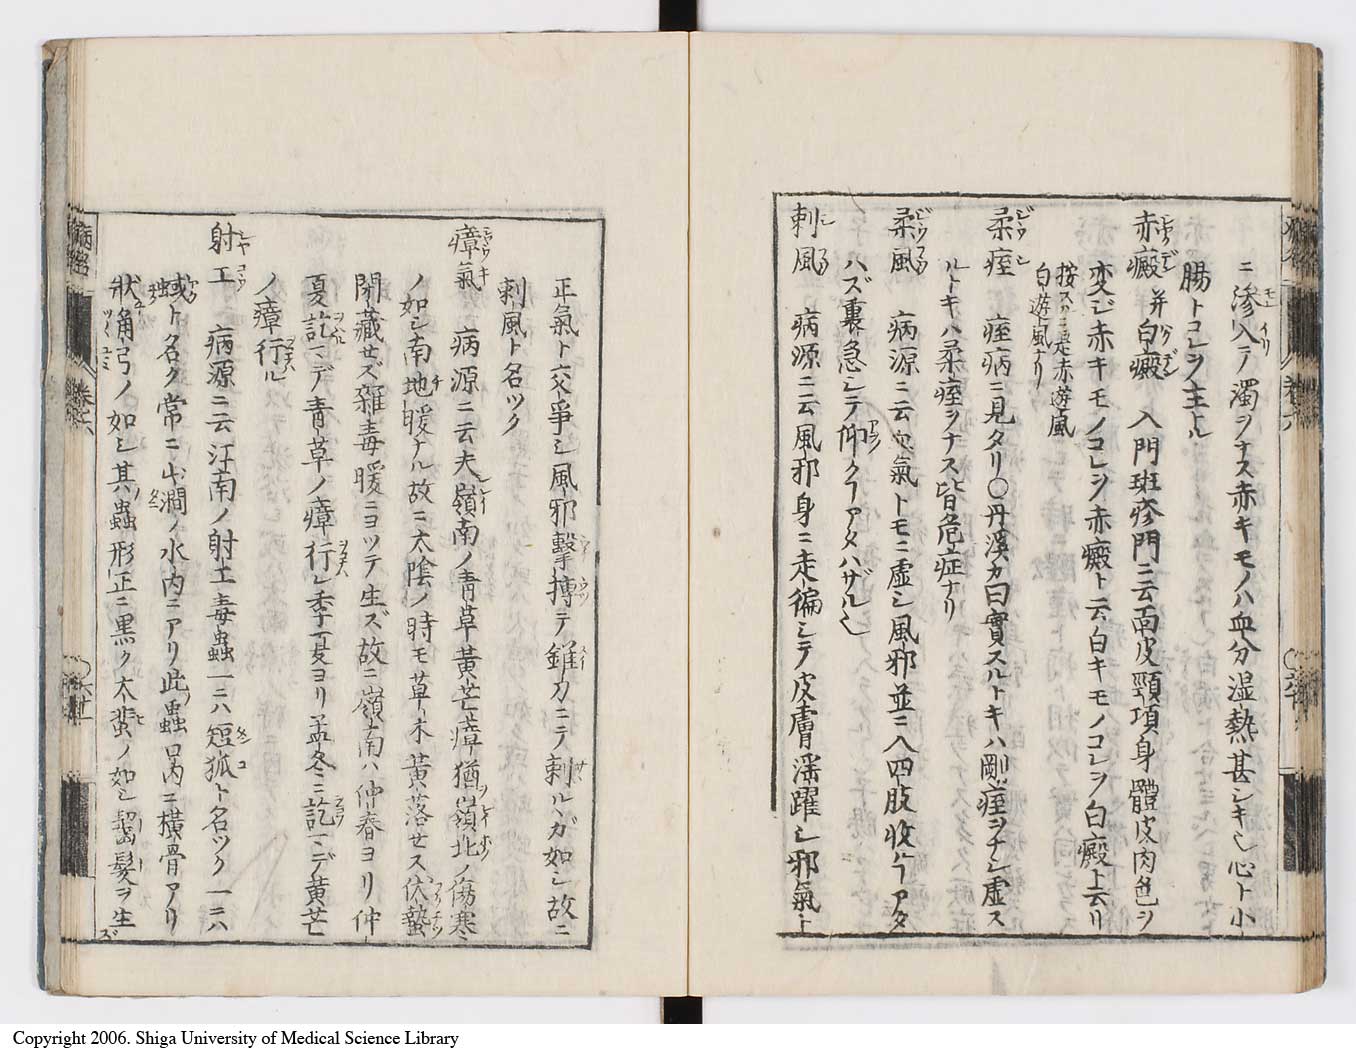 ニ滲入テ濁ヲナス赤キモノハ血分湿熱甚シキ也心ト小
腸トコレヲ主トル
赤癜 并白癜 入門斑疹門ニ云面皮頸項身體皮肉色ヲ
変ジ赤キモノコレヲ赤癜ト云白キモノコレヲ白癜ト云リ
按スルニ是赤遊風
白遊風ナリ
柔痙 痙病ニ見タリ〇丹溪カ曰實スルトキハ剛痙ヲナシ虚ス
ルトキハ柔痙ヲナス皆危症ナリ
柔風 病源ニ云血氣トモニ虚シ風邪並ニ入四肢收ルヿアタ
ハズ裏急シテ仰クヿアタハザル也
刺風 病源ニ云風邪身ニ走徧シテ皮膚淫躍シ邪氣ト
正氣ト交爭シ風邪擊搏テ錐カニテ刺ルガ如シ故ニ
刺風ト名ツク
瘴氣 病源ニ云夫嶺南ノ青草黃芒瘴猶嶺北ノ傷寒
ノ如シ南地暖ナル故ニ太陰ノ時モ草木黃落セス伏蟄
閉藏セズ雜毒暖ニヨツテ生ズ故ニ嶺南ハ仲春ヨリ仲
夏訖マデ青草ノ瘴行レ季夏ヨリ孟冬ニ訖マデ黃芒
ノ瘴行ル
射工 病源ニ云江南ノ射工毒蟲一ニハ短狐ト名ツク一ニハ
蜮ト名ク常ニ山澗ノ水內ニアリ此蟲口內ニ橫骨アリ
狀角弓ノ如シ其蟲形正ニ黑ク大蜚ノ如シ齧髮ヲ生ズ
卷之六